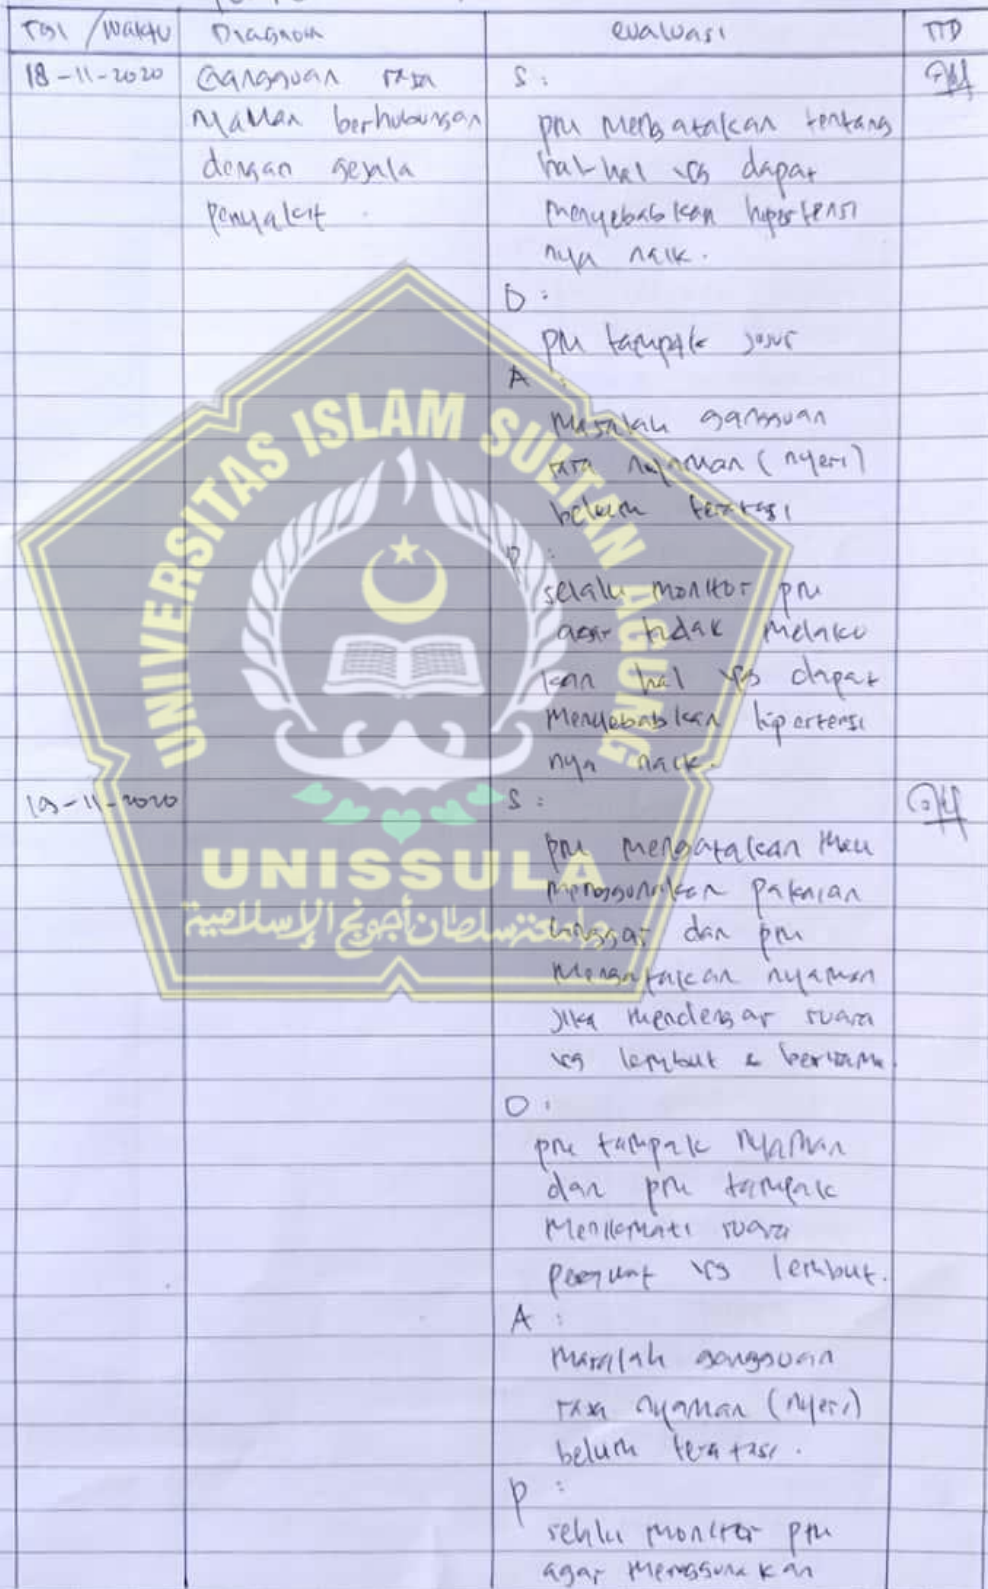 Tgl / Waktu Diagnosa evaluasi TTD
18-11-2020 Gangguan rasa S :
nyaman berhubungan pm mengatakan tentang
dengan gejala hal-hal yg dapat
penyakit . menyebabkan hipertensi
nya naik .
O :
pm tampak jujur
A :
Masalah gangguan
rasa nyaman ( nyeri )
belum teratasi
P :
selalu monitor pm
agar tidak melaku
kan hal yg dapat
menyebabkan hipertensi
nya naik .
19-11-2020 S :
pm mengatakan mau
menggunakan pakaian
longgar dan pm
mengatakan nyaman
jika mendengar suara
yg lembut &
O :
pm tampak nyaman
dan pm tampak
menikmati suara
perawat yg lembut .
A :
Masalah gangguan
rasa nyaman ( nyeri )
belum teratasi .
P :
selalu monitor pm
agar menggunakan
UNIVERSITAS ISLAM SULTAN AGUNG
UNISSULA
جامعة سلطان أجونج الإسلامية